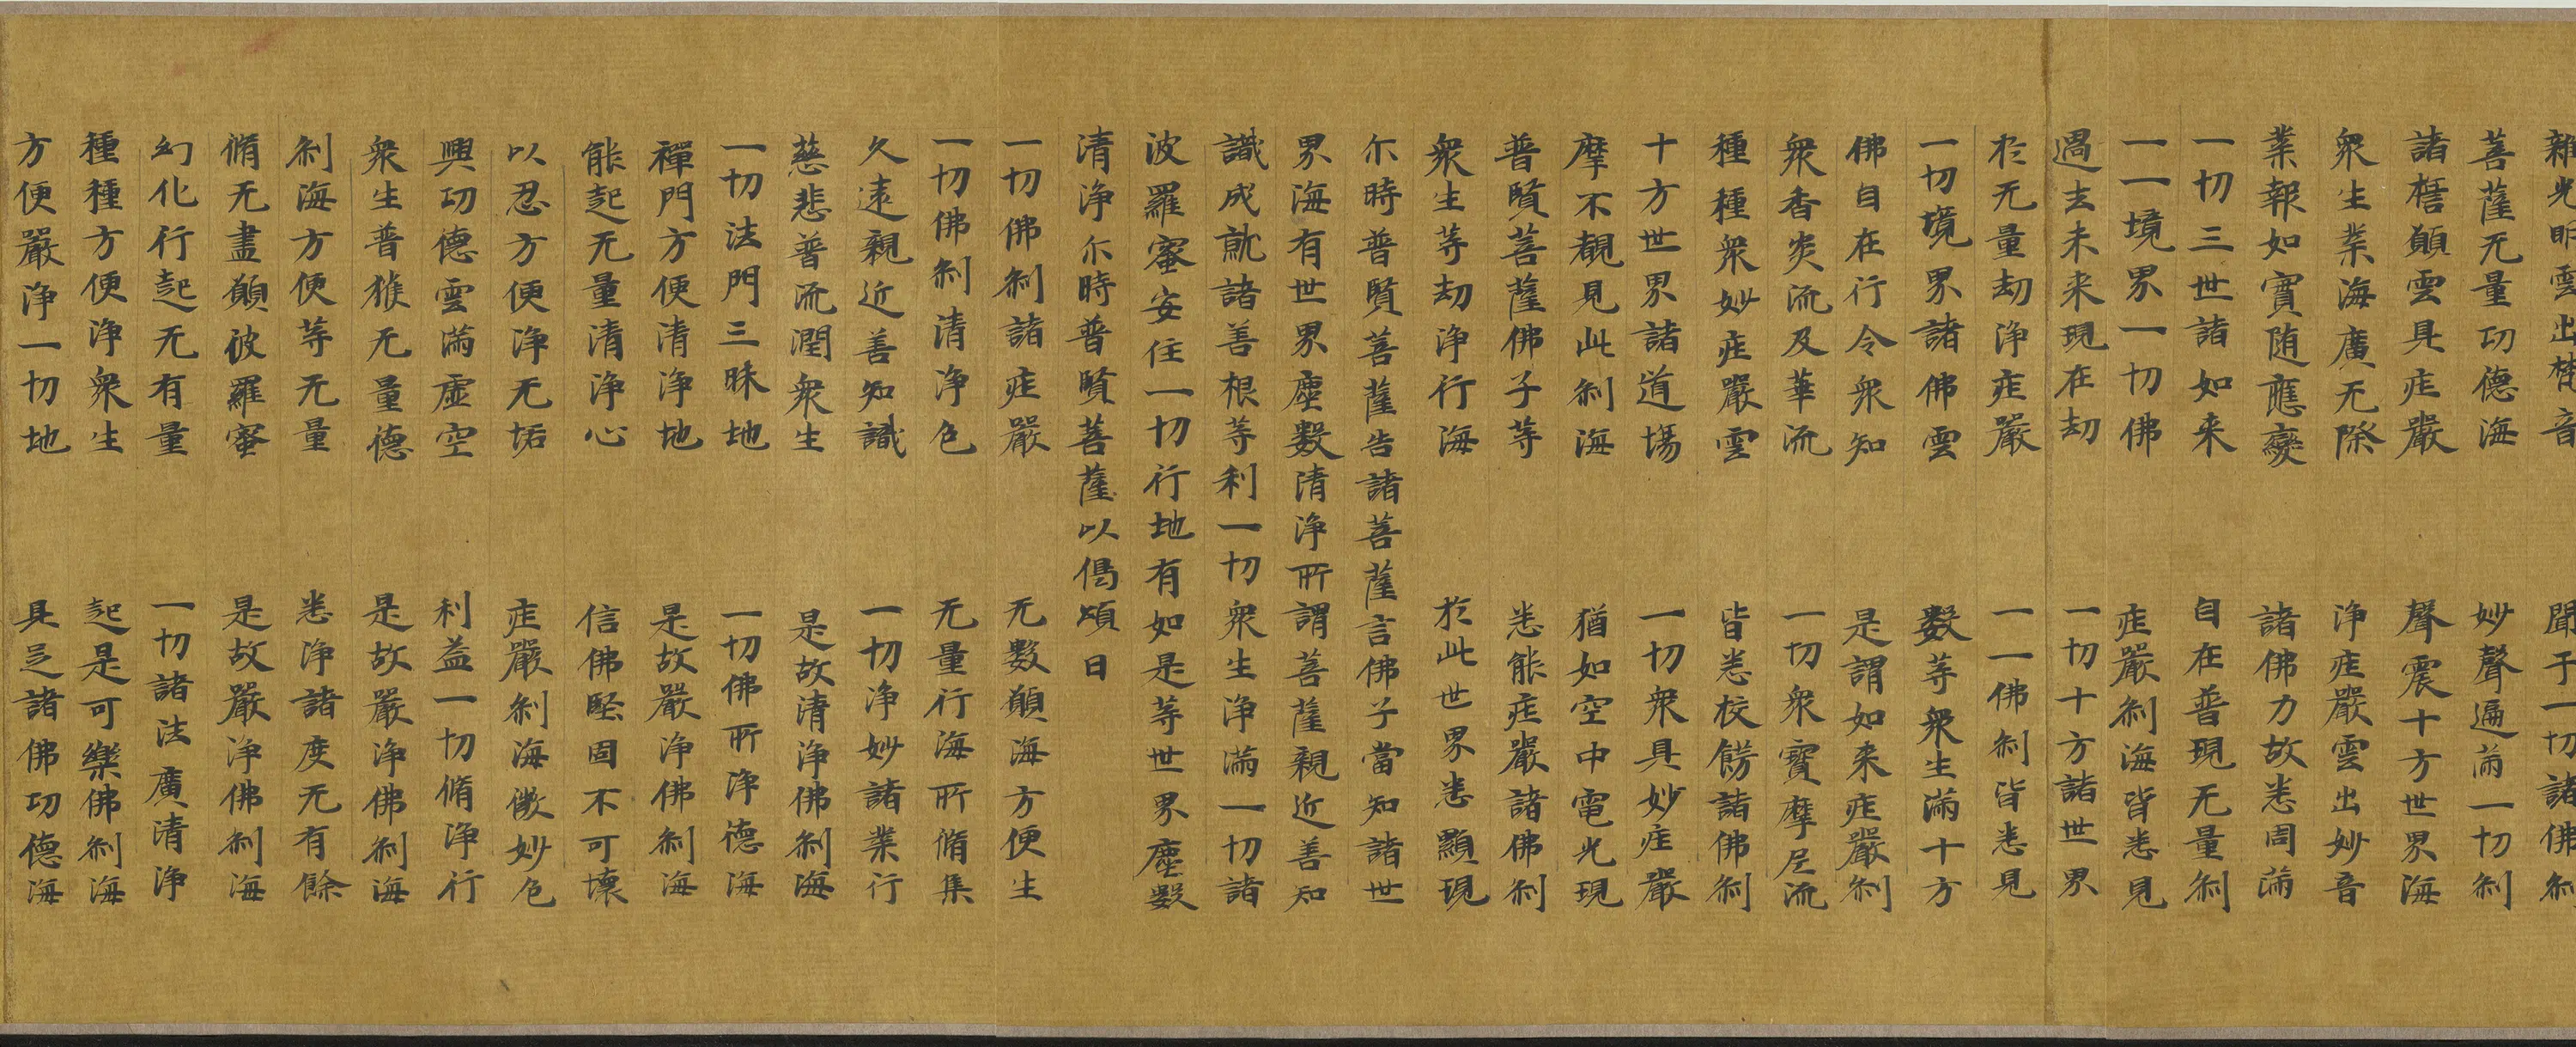 雜光明雲出梵音　聞于一切諸佛刹
菩薩无量功德海　妙聲遍滿一切刹
諸楷願雲具庄嚴　聲震十方世界海
衆生業海廣无際　淨庄嚴雲出妙音
業報如實随應變　諸佛力故悉周滿
一切三世諸如来　自在普現无量刹
一一境界一切佛　庄嚴刹海皆悉見
過去未来現在劫　一切十方諸世界
於无量劫淨庄嚴　一一佛刹皆悉見
一切境界諸佛雲　數等衆生滿十方
佛自在行令衆知　是謂如来庄嚴刹
衆香炎流及華流　一切衆寶摩尼流
種種衆妙庄嚴雲　皆悉校餝諸佛刹
十方世界諸道場　一切衆具妙庄嚴
摩不覩見此刹海　猶如空中電光現
普賢菩薩佛子等　悉能庄嚴諸佛刹
衆生等劫淨行海　於此世界悉顯現
尓時普賢菩薩告諸菩薩言佛子當知諸世
界海有世界塵數清淨所謂菩薩親近善知
識成就諸善根等利一切衆生淨滿一切諸
波羅蜜安住一切行地有如是等世界塵數
清淨尓時普賢菩薩以偈頌曰
一切佛刹諸庄嚴　无數願海方便生
一切佛刹清淨色　无量行海所脩集
久遠親近善知識　一切淨妙諸業行
慈悲普流潤衆生　是故清淨佛刹海
一切法門三昧地　一切佛所淨德海
禪門方便清淨地　是故嚴淨佛刹海
能起无量清淨心　信佛堅固不可壞
以忍方便淨无垢　庄嚴刹海微妙色
興功德雲滿虛空　利益一切脩淨行
衆生普獲无量德　是故嚴淨佛刹海
刹海方便等无量　悉淨諸度无有餘
脩无盡願波羅蜜　是故嚴淨佛刹海
幻化行起无有量　一切諸法廣清淨
種種方便淨衆生　起是可樂佛刹海
方便嚴淨一切地　具足諸佛功德海